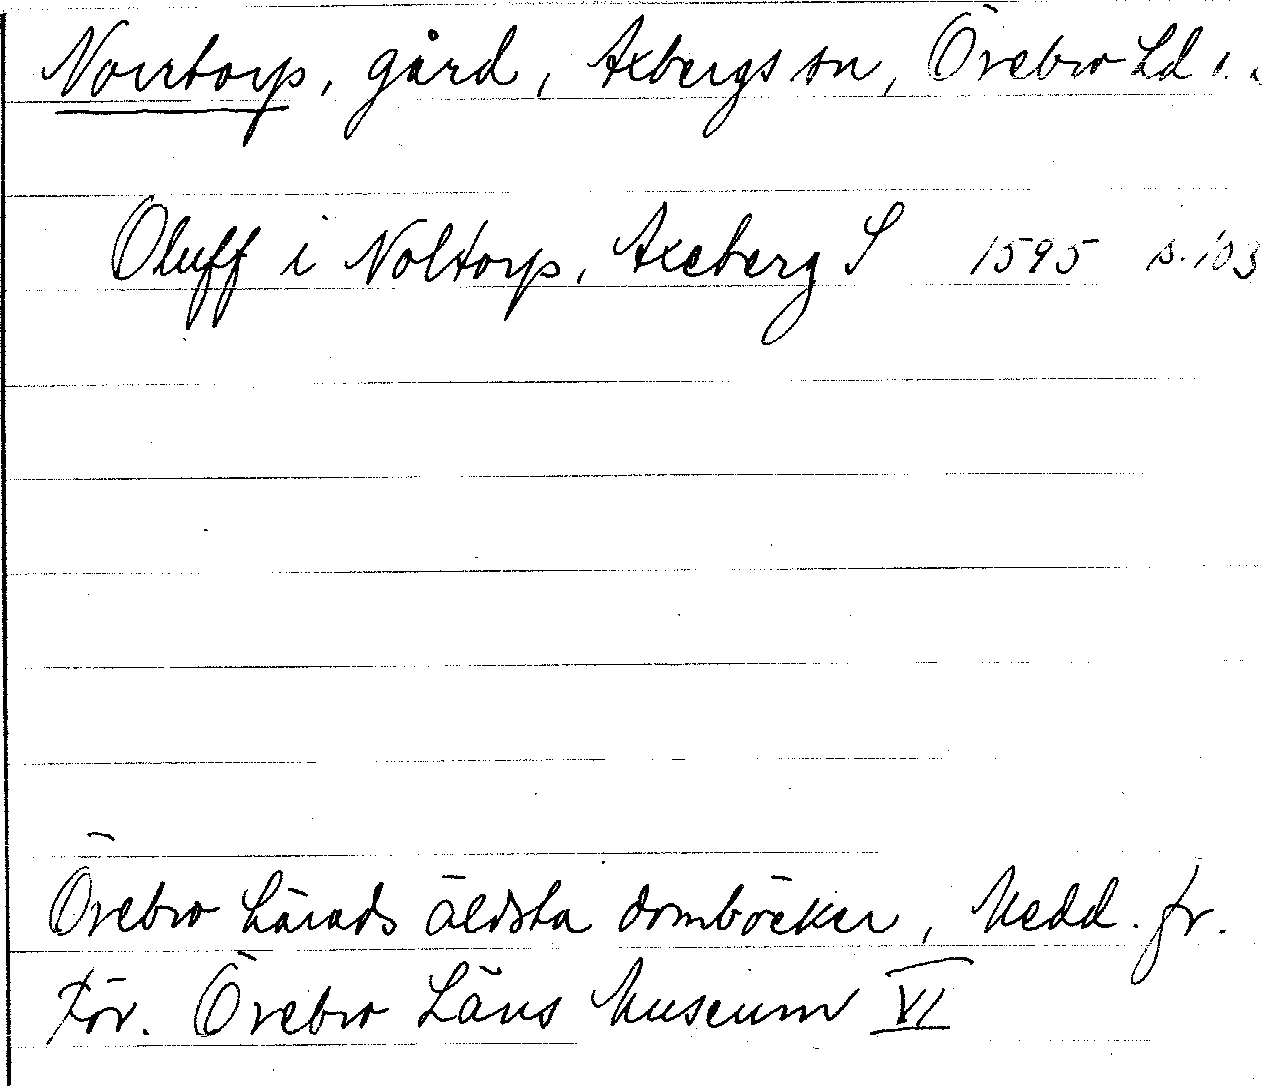 Norrtorp, gård, Axbergs sn, Örebro hd
Oluff i Noltorp, Axeberg S 1595 s. 103
Örebro härads äldsta domböcker, Medd. fr.
För. Örebro Läns Museum VI